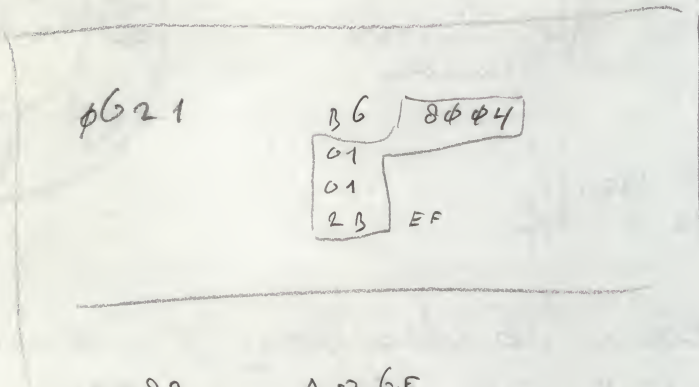 φ621 B6 8φφ4
01
01
2B EF